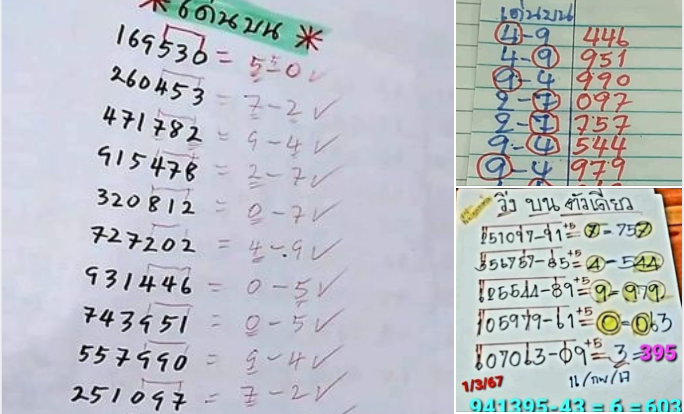 * 6เด่นบน *
169530 = 5-0 ✓
260453 = 7-2 ✓
471782 = 9-4 ✓
915478 = 2-7 ✓
320812 = 0-7 ✓
727202 = 4-9 ✓
931446 = 0-5 ✓
743951 = 0-5 ✓
557990 = 9-4 ✓
251097 = 7-2 ✓
เด่นบน
4-9 446
4-9 951
9-4 990
2-7 097
2-7 757
9-4 544
9-4 979
วิ่ง บน ตัวเดียว
251097-91+5= 7=757
556757-85+5= 4-544
185544-89+5= 9=979
105979-61+5= 0=063
607063-09+5= 3=395
1/3/67
941395-43 = 6 = 603